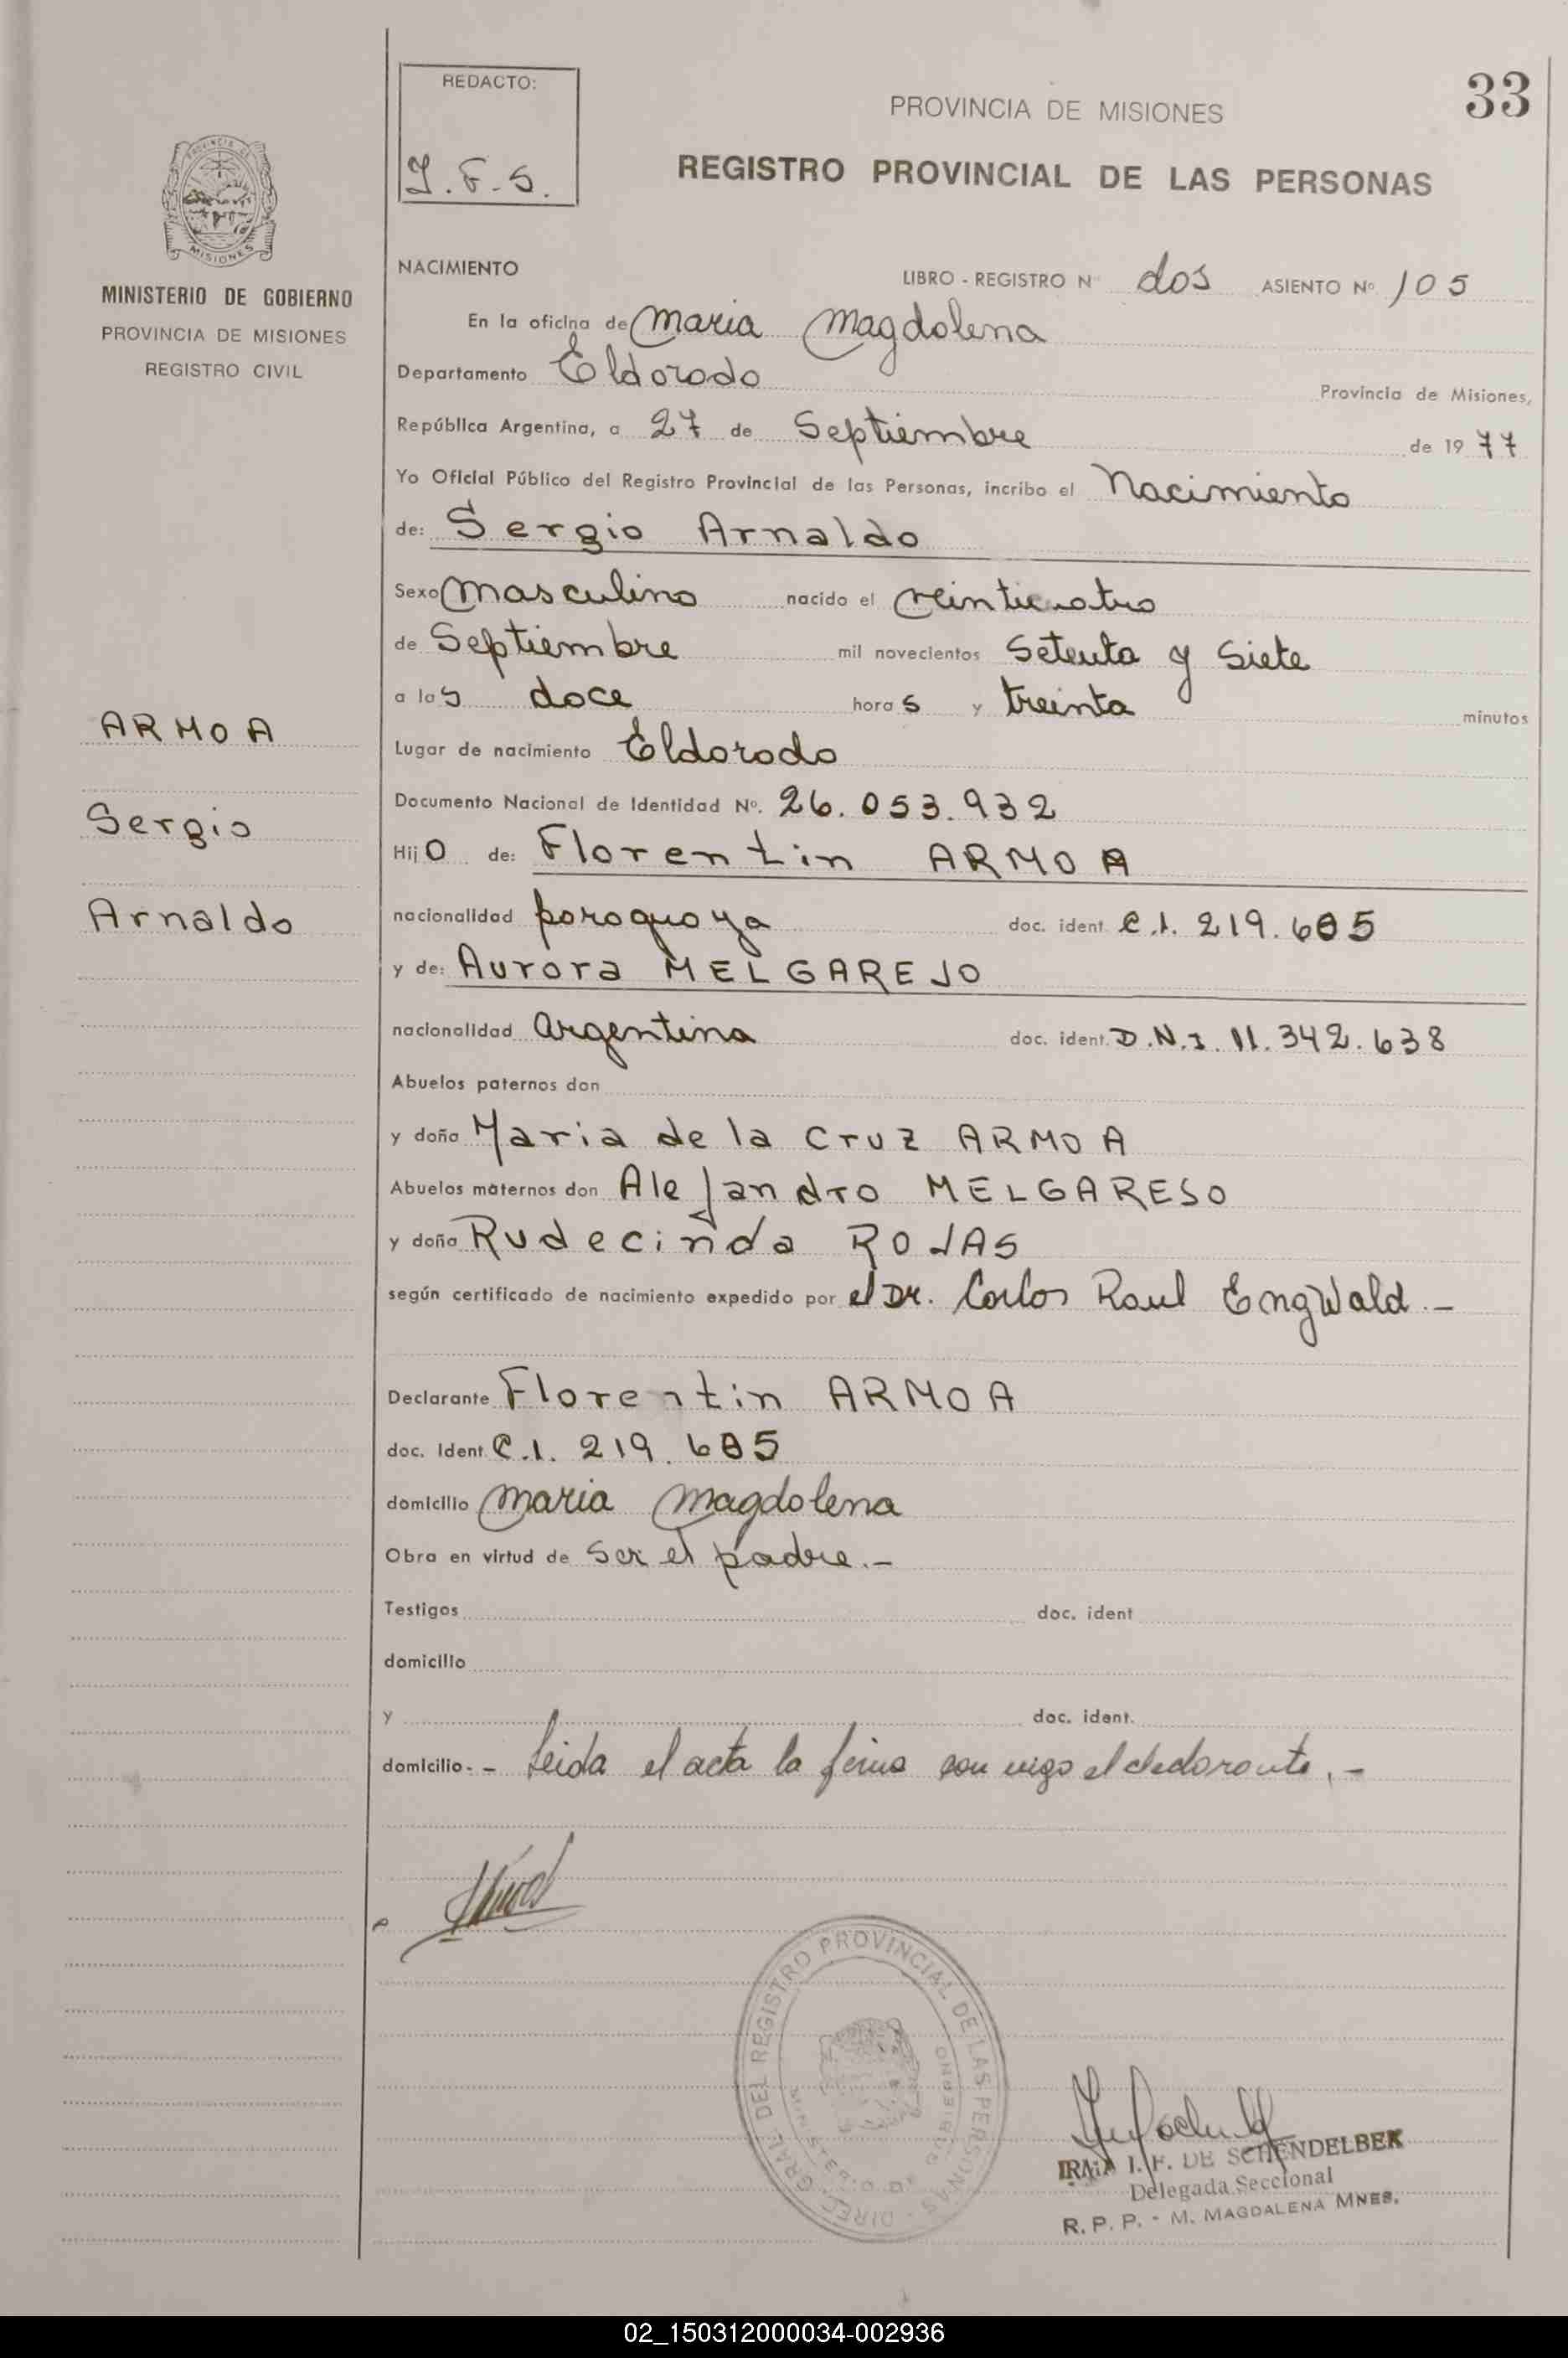 33
REDACTO:
I.F.S.
PROVINCIA DE MISIONES
REGISTRO PROVINCIAL DE LAS PERSONAS
PROVINCIA DE
MISIONES
MINISTERIO DE GOBIERNO
PROVINCIA DE MISIONES
REGISTRO CIVIL
ARMOA
Sergio
Arnaldo
NACIMIENTO
LIBRO - REGISTRO Nº dos ASIENTO Nº 105
En la oficina de Maria Magdalena
Departamento Eldorado Provincia de Misiones,
República Argentina, a 27 de Septiembre de 1977
Yo Oficial Público del Registro Provincial de las Personas, incribo el Nacimiento
de: Sergio Arnaldo
Sexo masculino nacido el veinticuatro
de Septiembre mil novecientos Setenta y Siete
a las doce horas y treinta minutos
Lugar de nacimiento Eldorado
Documento Nacional de Identidad Nº. 26.053.932
Hijo de: Florentin ARMOA
nacionalidad paraguaya doc. ident. C.I. 219.605
y de: Aurora MELGAREJO
nacionalidad argentina doc. ident. D.N.I. 11.342.638
Abuelos paternos don
y doña Maria de la Cruz ARMOA
Abuelos maternos don Alejandro MELGARESO
y doña Rudecinda ROJAS
según certificado de nacimiento expedido por el Dr. Carlos Raul Engwald.-
Declarante Florentin ARMOA
doc. Ident. C.I. 219.605
domicilio Maria Magdalena
Obra en virtud de Ser el padre.-
Testigos doc. ident
domicilio
y doc. ident.
domicilio.- Leida el acta la firma con migo el declarante.-
DIREC. GRAL. DEL REGISTRO PROVINCIAL DE LAS PERSONAS
MINISTERIO DE GOBIERNO
IRMA I. F. DE SCHENDELBEK
Delegada Seccional
R. P. P. - M. MAGDALENA MNES.
02_150312000034-002936